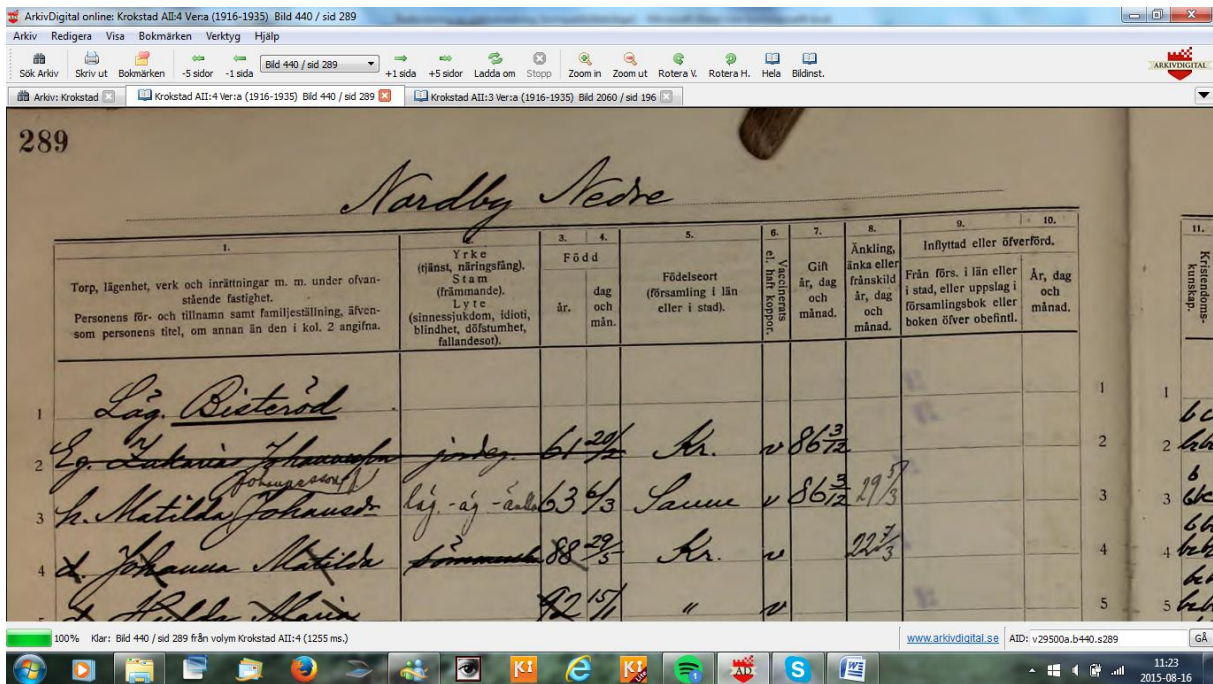 ArkivDigital online: Krokstad AII:4 Ver:a (1916-1935) Bild 440 / sid 289
Arkiv Redigera Visa Bokmärken Verktyg Hjälp
Sök Arkiv Skriv ut Bokmärken -5 sidor -1 sida Bild 440 / sid 289 +1 sida +5 sidor Ladda om Stopp Zoom in Zoom ut Rotera V. Rotera H. Hela Bildinst.
ARKIVDIGITAL
Arkiv: Krokstad Krokstad AII:4 Ver:a (1916-1935) Bild 440 / sid 289 Krokstad AII:3 Ver:a (1916-1935) Bild 2060 / sid 196
289
Nordby Nedre
1.
Torp, lägenhet, verk och inrättningar m. m. under ofvan-
stående fastighet.
Personens för- och tillnamn samt familjeställning, äfven-
som personens titel, om annan än den i kol. 2 angifna.
2.
Yrke
(tjänst, näringsfång).
Stam
(främmande).
Lyte
(sinnessjukdom, idioti,
blindhet, döfstumhet,
fallandesot).
3. 4.
Född
år.
dag
och
mån.
5.
Födelseort
(församling i län
eller i stad).
6.
Vaccinerats
el. haft koppor.
7.
Gift
år, dag
och
månad.
8.
Änkling,
änka eller
frånskild
år, dag
och
månad.
9. 10.
Inflyttad eller öfverförd.
Från förs. i län eller
i stad, eller uppslag i
församlingsbok eller
boken öfver obefintl.
År, dag
och
månad.
11.
Kristendoms-
kunskap.
1 Läg. Bisteröd 1 1
2 Eg. Zakarias Johannesson jordeg. 61 20/2 Kr. v 86 3/12 2 2
Johannesson
3 h. Matilda Johansdr läg.-äg-änka 63 6/3 Sanne v 86 3/12 29 5/3 3 3
4 d. Johanna Matilda sömmerska 88 29/5 Kr. v 22 7/3 4 4
5 d. Hulda Maria 92 15/1 " v 5 5
100% Klar: Bild 440 / sid 289 från volym Krokstad AII:4 (1255 ms.) www.arkivdigital.se AID: v29500a.b440.s289 GÅ
11:23
2015-08-16